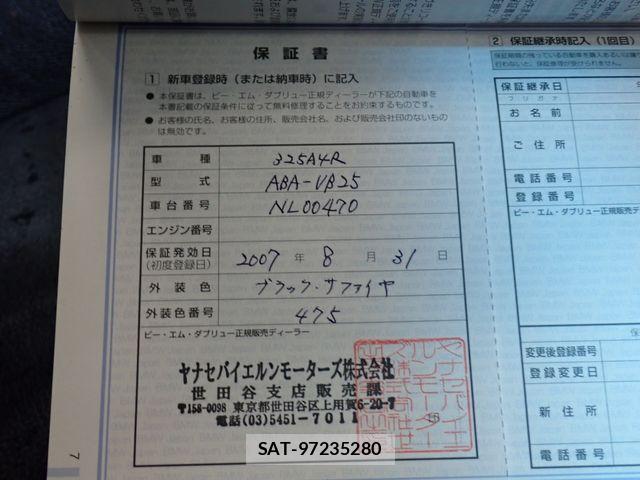 保証書
1 新車登録時(または納車時)に記入
● 本保証書は、ビー・エム・ダブリュー正規ディーラーが下記の自動車を
本書記載の保証条件に従って無料修理することをお約束するものです。
● お客様の氏名、お客様の住所、販売会社名、および販売会社印のないもの
は無効です。
車種 325A4R
型式 ABA-VB25
車台番号 NL00470
エンジン番号
保証発効日 2007 年 8 月 31 日
(初度登録日)
外装色 ブラック・サファイヤ
外装色番号 475
ビー・エム・ダブリュー正規販売ディーラー
ヤナセバイエルンモーターズ株式会社
世田谷支店販売課
〒158-0098 東京都世田谷区上用賀6-20-7
電話(03)5451-7011
7
2 保証継承時記入(1回目)
保証継承日
フリガナ
お名前
ご住所
電話番号
登録番号
ビー・エム・ダブリュー正規販売デ
変更後登録番号
登録変更日
新住所
電話番号
SAT-97235280